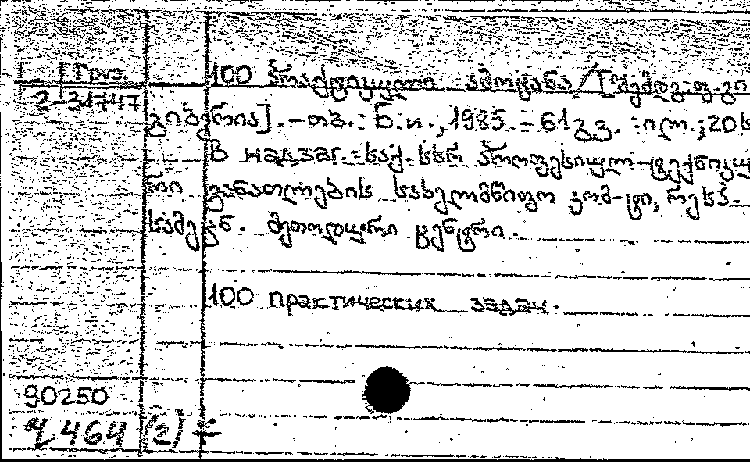 Груз.
100 პრაქტიკული ამოცანა / [შემდგ. ფ. გი
2-31747
გიბერია]. – თბ. : Б. и., 1985. – 61 გვ. : ილ.; 20 ს
В надзаг.: საქ. სსრ პროფესიულ-ტექნიკუ
რი განათლების სახელმწიფო კომ-ტი, რესპ.
სამეცნ. მეთოდური ცენტრი.
100 практических задач.
90250
464 (2)